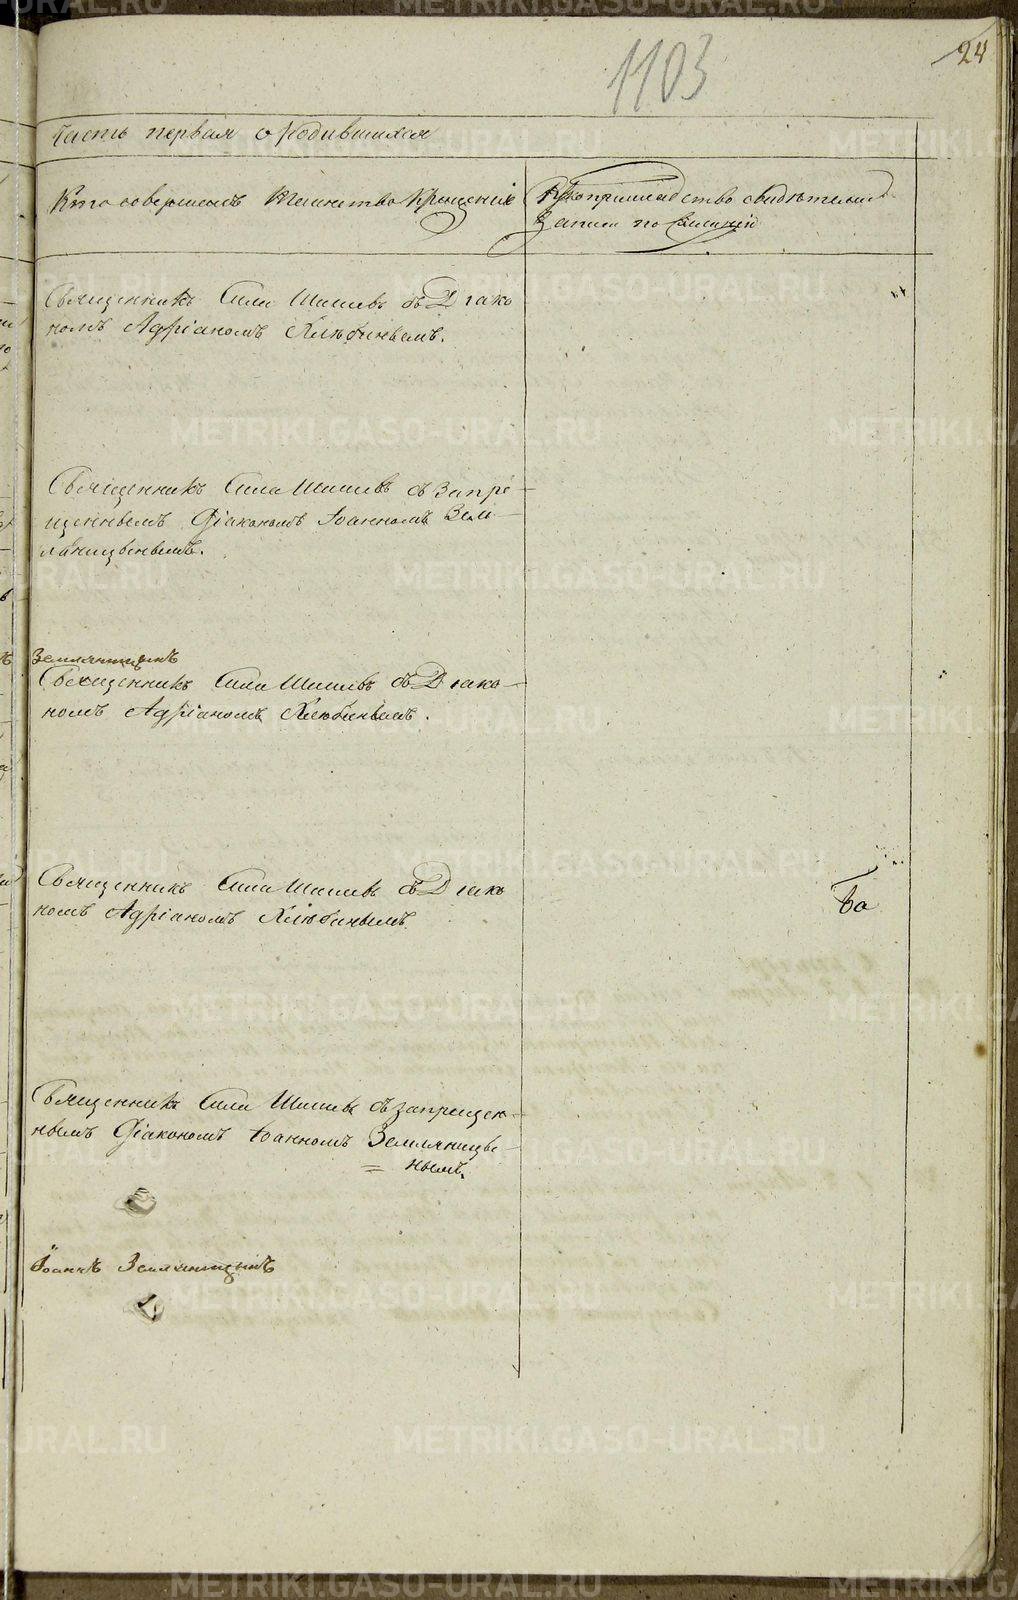 24
1103
Часть первая о родившихся
Кто совершалъ таинство крещенія
Рукоприкладство свидѣтелей
записи по желанію
Священникъ Сила Шишевъ съ Діако
номъ Адріаномъ Хлѣбинымъ.
Священникъ Сила Шишевъ съ запре
щеннымъ Діакономъ Іоанномъ Зем
ляницынымъ.
Земляницынъ
Священникъ Сила Шишевъ съ Діако
номъ Адріаномъ Хлѣбинымъ.
Священникъ Сила Шишевъ съ Діако
номъ Адріаномъ Хлѣбинымъ
Священникъ Сила Шишевъ съ запрещен
нымъ Діакономъ Іоанномъ Земляницы
= нымъ.
Іоаннъ Земляницынъ
METRIKI.GASO-URAL.RU